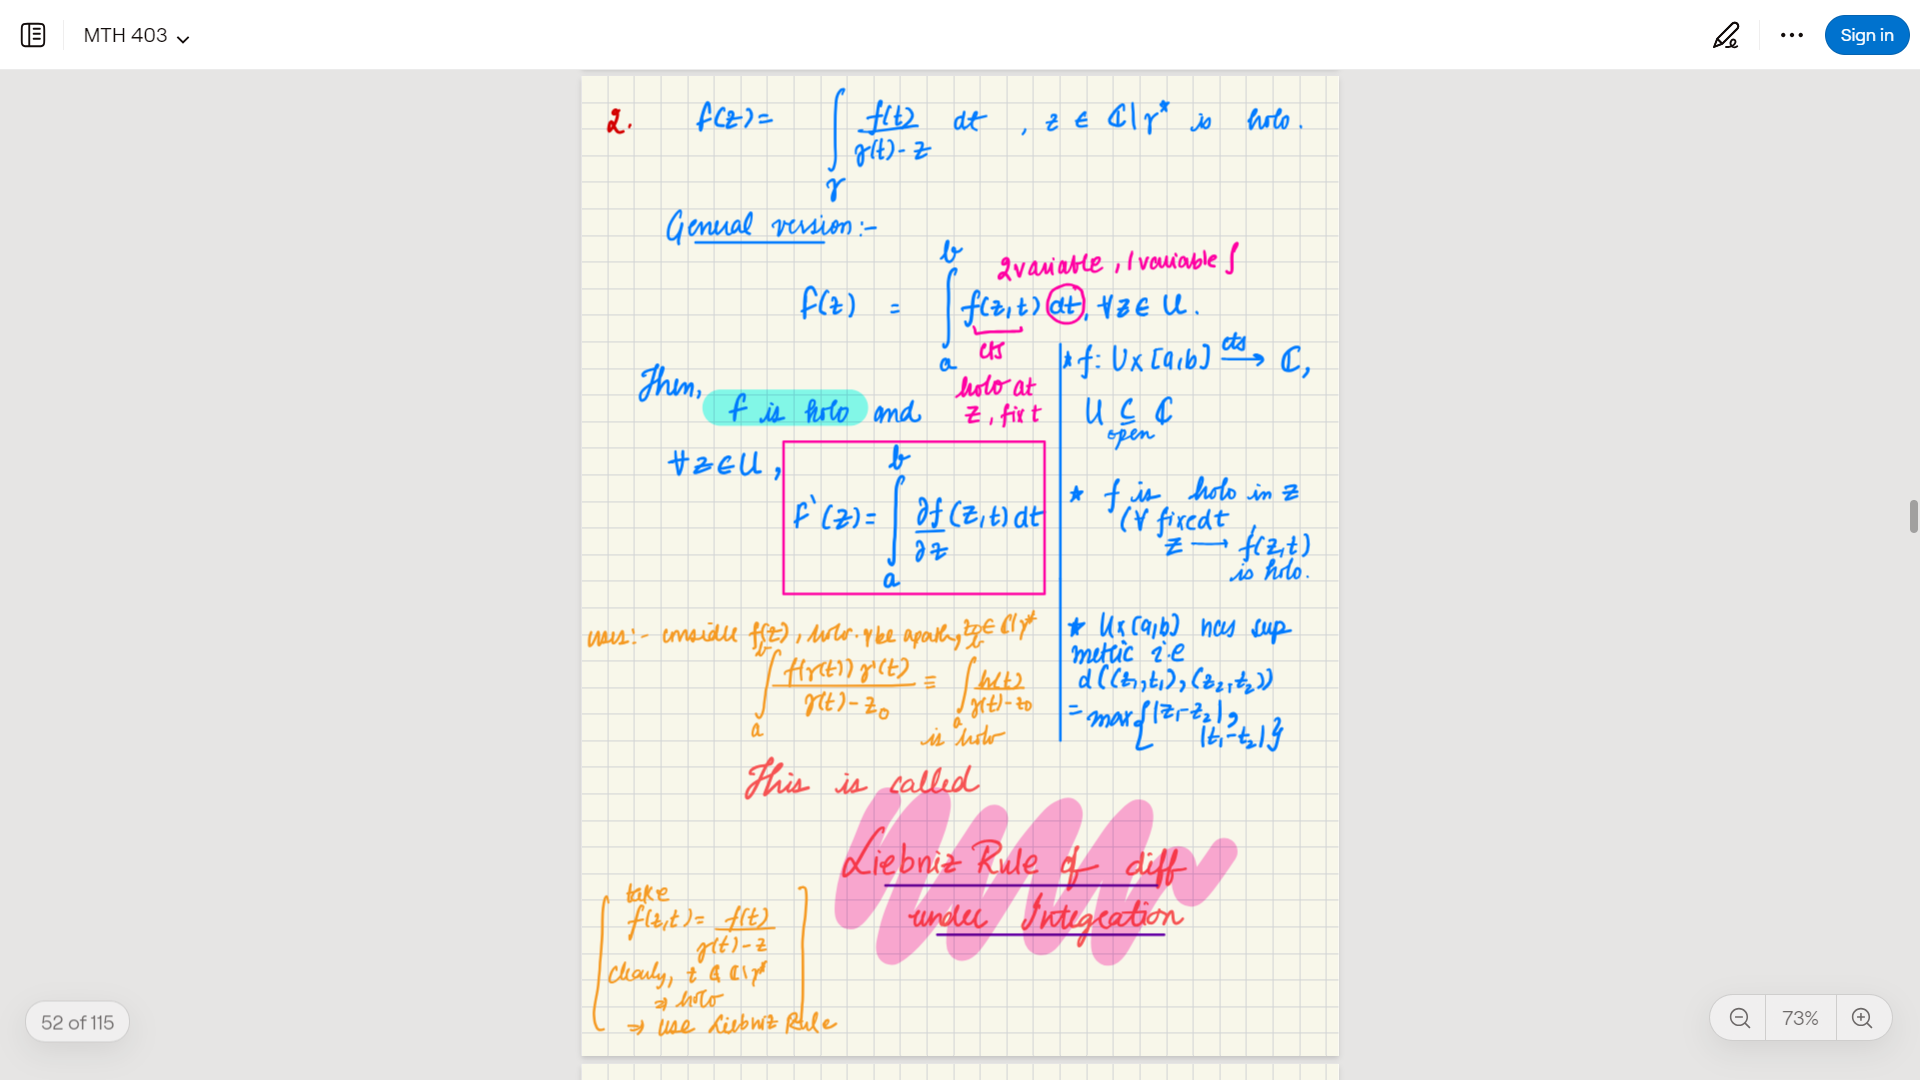 MTH 403
Sign in
2. f(z) = ∫_γ f(t)/(γ(t) - z) dt , z ∈ ℂ\γ* is holo.
General version:-
2 variable, 1 variable ∫
F(z) = ∫_a^b f(z,t) dt, ∀ z ∈ U.
cts
holo at
z, fix t
* f: U x [a,b] cts→ ℂ,
U ⊆ ℂ
open
Then, F is holo and
∀ z ∈ U, F'(z) = ∫_a^b ∂f/∂z (z,t) dt
* f is holo in z
(∀ fixed t
z → f(z,t)
is holo.
* U x [a,b] has sup
metric i.e
d((z₁,t₁),(z₂,t₂))
= max{|z₁-z₂|,
|t₁-t₂|}
uses:- consider f(z), holo. γ be a path, z₀ ∈ ℂ\γ*
∫_a^b f(γ(t)) γ'(t)/(γ(t) - z₀) ≡ ∫_a^b h(t)/(γ(t) - z₀)
is holo
This is called
Liebniz Rule of diff
under Integration
take
f(z,t) = f(t)/(γ(t) - z)
Clearly, t ∉ ℂ\γ*
⇒ holo
⇒ use Liebniz Rule
52 of 115
73%